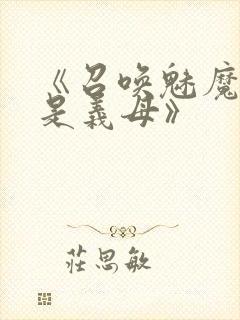 《召唤魅魔
是義母》
莊思敏